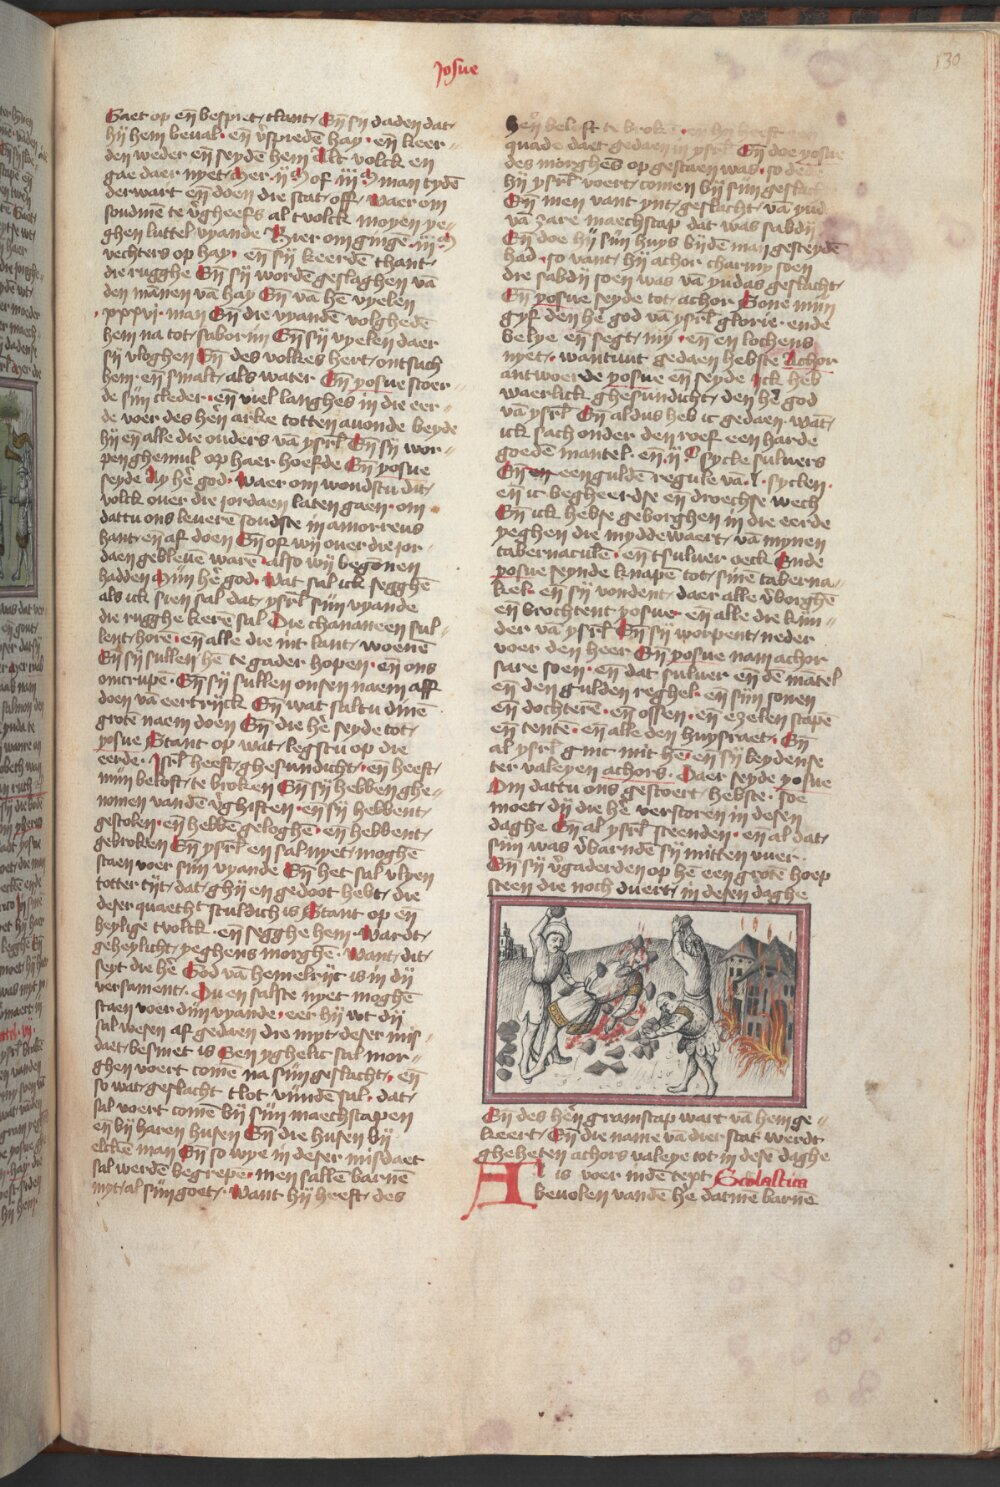 Josue
130
Gaet op en̄ bespiet tlant · En̄ sij daden dat
hij hem beual · en̄ v̄spiedē hay · en̄ keer
den weder en̄ seydē hem Alt volck en
gae daer nyet · Mer · ij · M of · iij · M man tydē
derwart en̄ doen die stat off · Waer om
soudmē te v̄gheefs al tvolck moyen ye
ghen luttel vyande · Hier om ginge · iij · M
vechters op hay · en̄ sij keerdē thant
die rugghe En̄ sij wordē geslaghen vā
den mānen vā hay En̄ vā hē vyelen
xxxvi · man En̄ die vyandē volghedē
hem na tot saborim En̄ sij vyelen daer
sij vloghen En̄ des volkes hert ontsach
hem · en̄ smalt als water En̄ yosue scoer
de sijn cleder · en̄ viel langhes in die eer
de voer des hērē arke totten auonde beyde
hij en̄ alle die ouders vā ysrl̄ En̄ sij wor
pen ghemul op haer hoefde En̄ yosue
seyde Ay hē god · Waer om woudstu dit
volck ouer die iordaen laten gaen · om
dattu ons leuerē soudste in amorreus
hant · en̄ af doen En̄ of wij ouer die ior
daen gebleuē warē · also wij begonen
hadden Mijn hē god · Wat sal ick segghē
als ick sien sal dat ysrl̄ sijn vyande
die rugghe kerē sal Die chananeen sul
lent horē · en̄ alle die int lant woenē
En̄ sij sullen hē te gader hopen · en̄ ons
omcrupē · En̄ sij sullen onsen naem aff
doen vā eertrijck En̄ wat saltu dinē
grotē naem doen En̄ die hē seyde tot
yosue Stant op wat legstu op die
eerde · Isrl̄ heeft ghesundicht · en̄ heeft
mijn beloft te broken En̄ sij hebben ghe
nomen vandē v̄ghiften · en̄ sij hebbent
gestolen · en̄ hebbē geloghē · en̄ hebbent
gebroken En̄ ysrl̄ en sal nyet moghē
staen voer sijn vyande En̄ het sal vlyen
totter tijt dat ghij en gedoot hebt die
deser quaetht sculdich is Stant op en̄
heylige tvolck · en̄ segghe hem · Wardt
geheylicht yeghens morghē · Want dit
seyt die hē God vā hemelrijc is in dij
versament · Du en salste nyet moghē
staen voer dijn vyande · eer hij wt dij
sal wesen af gedaen die myt deser mis
daet besmet is Een yghelic sal mor
ghen voert comē na sijn geslacht · en̄
so wat geslacht tlot vijndē sal · dat
sal voert comē bij sijn maechstapen
en bij haren husen En̄ die husen bij
elckē man En̄ so wye in deser misdaet
sal werdē begrepē · men sallē barnē
myt al sijn goet · Want hij heeft des
herē beloft te brokē · en hij heeft
quade daet gedaen in ysrl̄ En̄ doe yosue
des morghēs op gestaen was · so ded
hij ysrl̄ voert comen bij sijn geslacht
En̄ men vant ynt geslacht vā yud
vā zare maechscap dat was sabdij
En̄ doe hij sijn huys bijdē man gesceydē
had · so vant hij achor charmy soen
die sabdij soen was vā yudas geslacht
En̄ yosue seyde tot achor Sone mijn
gyf den hē god vā ysrl̄ glorie · ende
belye en̄ segt my · en̄ en lochens
nyet · wantuut gedaen hebste Achor
antwoerde yosue en̄ seyde Ick heb
waerlick ghesundicht den hē god
vā ysrl̄ En̄ aldus heb ic gedaen · Wāt
ick sach onder den roef een harde
goedē mantel · en̄ · ij · C sycke suluers
En̄ een guldē regule vā · l · syclen
en̄ ic begheerdse en̄ droechse wech
En̄ ick hebse geborghen in die eerde
yeghen die myddewaert vā mynen
tabernaculē · en̄ tsuluer oeck Ende
yosue seynde knapē tot sinē taberna
kel · en̄ sij vondent daer alle v̄borghē
en̄ brochtent yosue en̄ alle die kijn
der vā ysrl̄ En̄ sij worpent neder
voer den heer En̄ yosue nam achor
sare soen · en̄ dat suluer en̄ dē mātel
en̄ den gulden reghel · en̄ sijn sonen
en̄ dochterē · en̄ ossen · en̄ ezelen scapē
en̄ tentē · en̄ alle den huysraet · En̄
al ysrl̄ ginc mit hē · en̄ sij leydense
ter valeyen achors · Daer seyde yosue
Om dattu ons gestoert hebste · soe
moet dij die hē verstoren in desen
daghe En̄ al ysrl̄ steenden · en̄ al dat
sijn was v̄barndē sij mitten vuer
En̄ sij v̄gaderden op hē een grotē hoep
steen die noch duert in desen daghe
En̄ des hērē gramscap wart vā hem ge
keert En̄ die name vā dier stat werdt
gheheten achors valeye tot in dese daghe
Al is voer indē text Scolastica
beuolen vandē hē datmē barnē